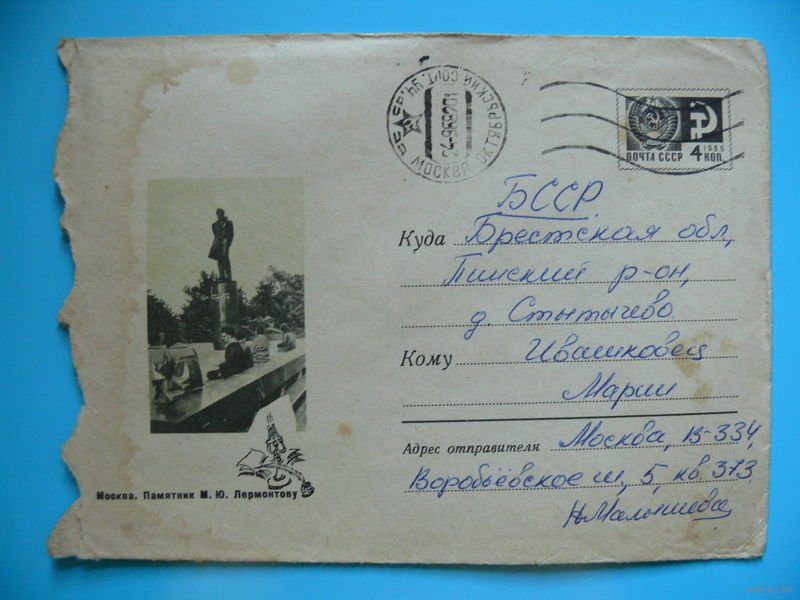 МОСКВА ОКТЯБРЬСКИЙ СОРТ. УЧ.
24-968201
ПОЧТА СССР 4 КОП.
1966
БССР
Куда Брестская обл,
Пинский р-он,
д. Стытычево
Кому Ивашковец
Марии
Адрес отправителя Москва, В-334,
Воробьёвское ш, 5, кв 373
Н. Малышева
Москва. Памятник М. Ю. Лермонтову